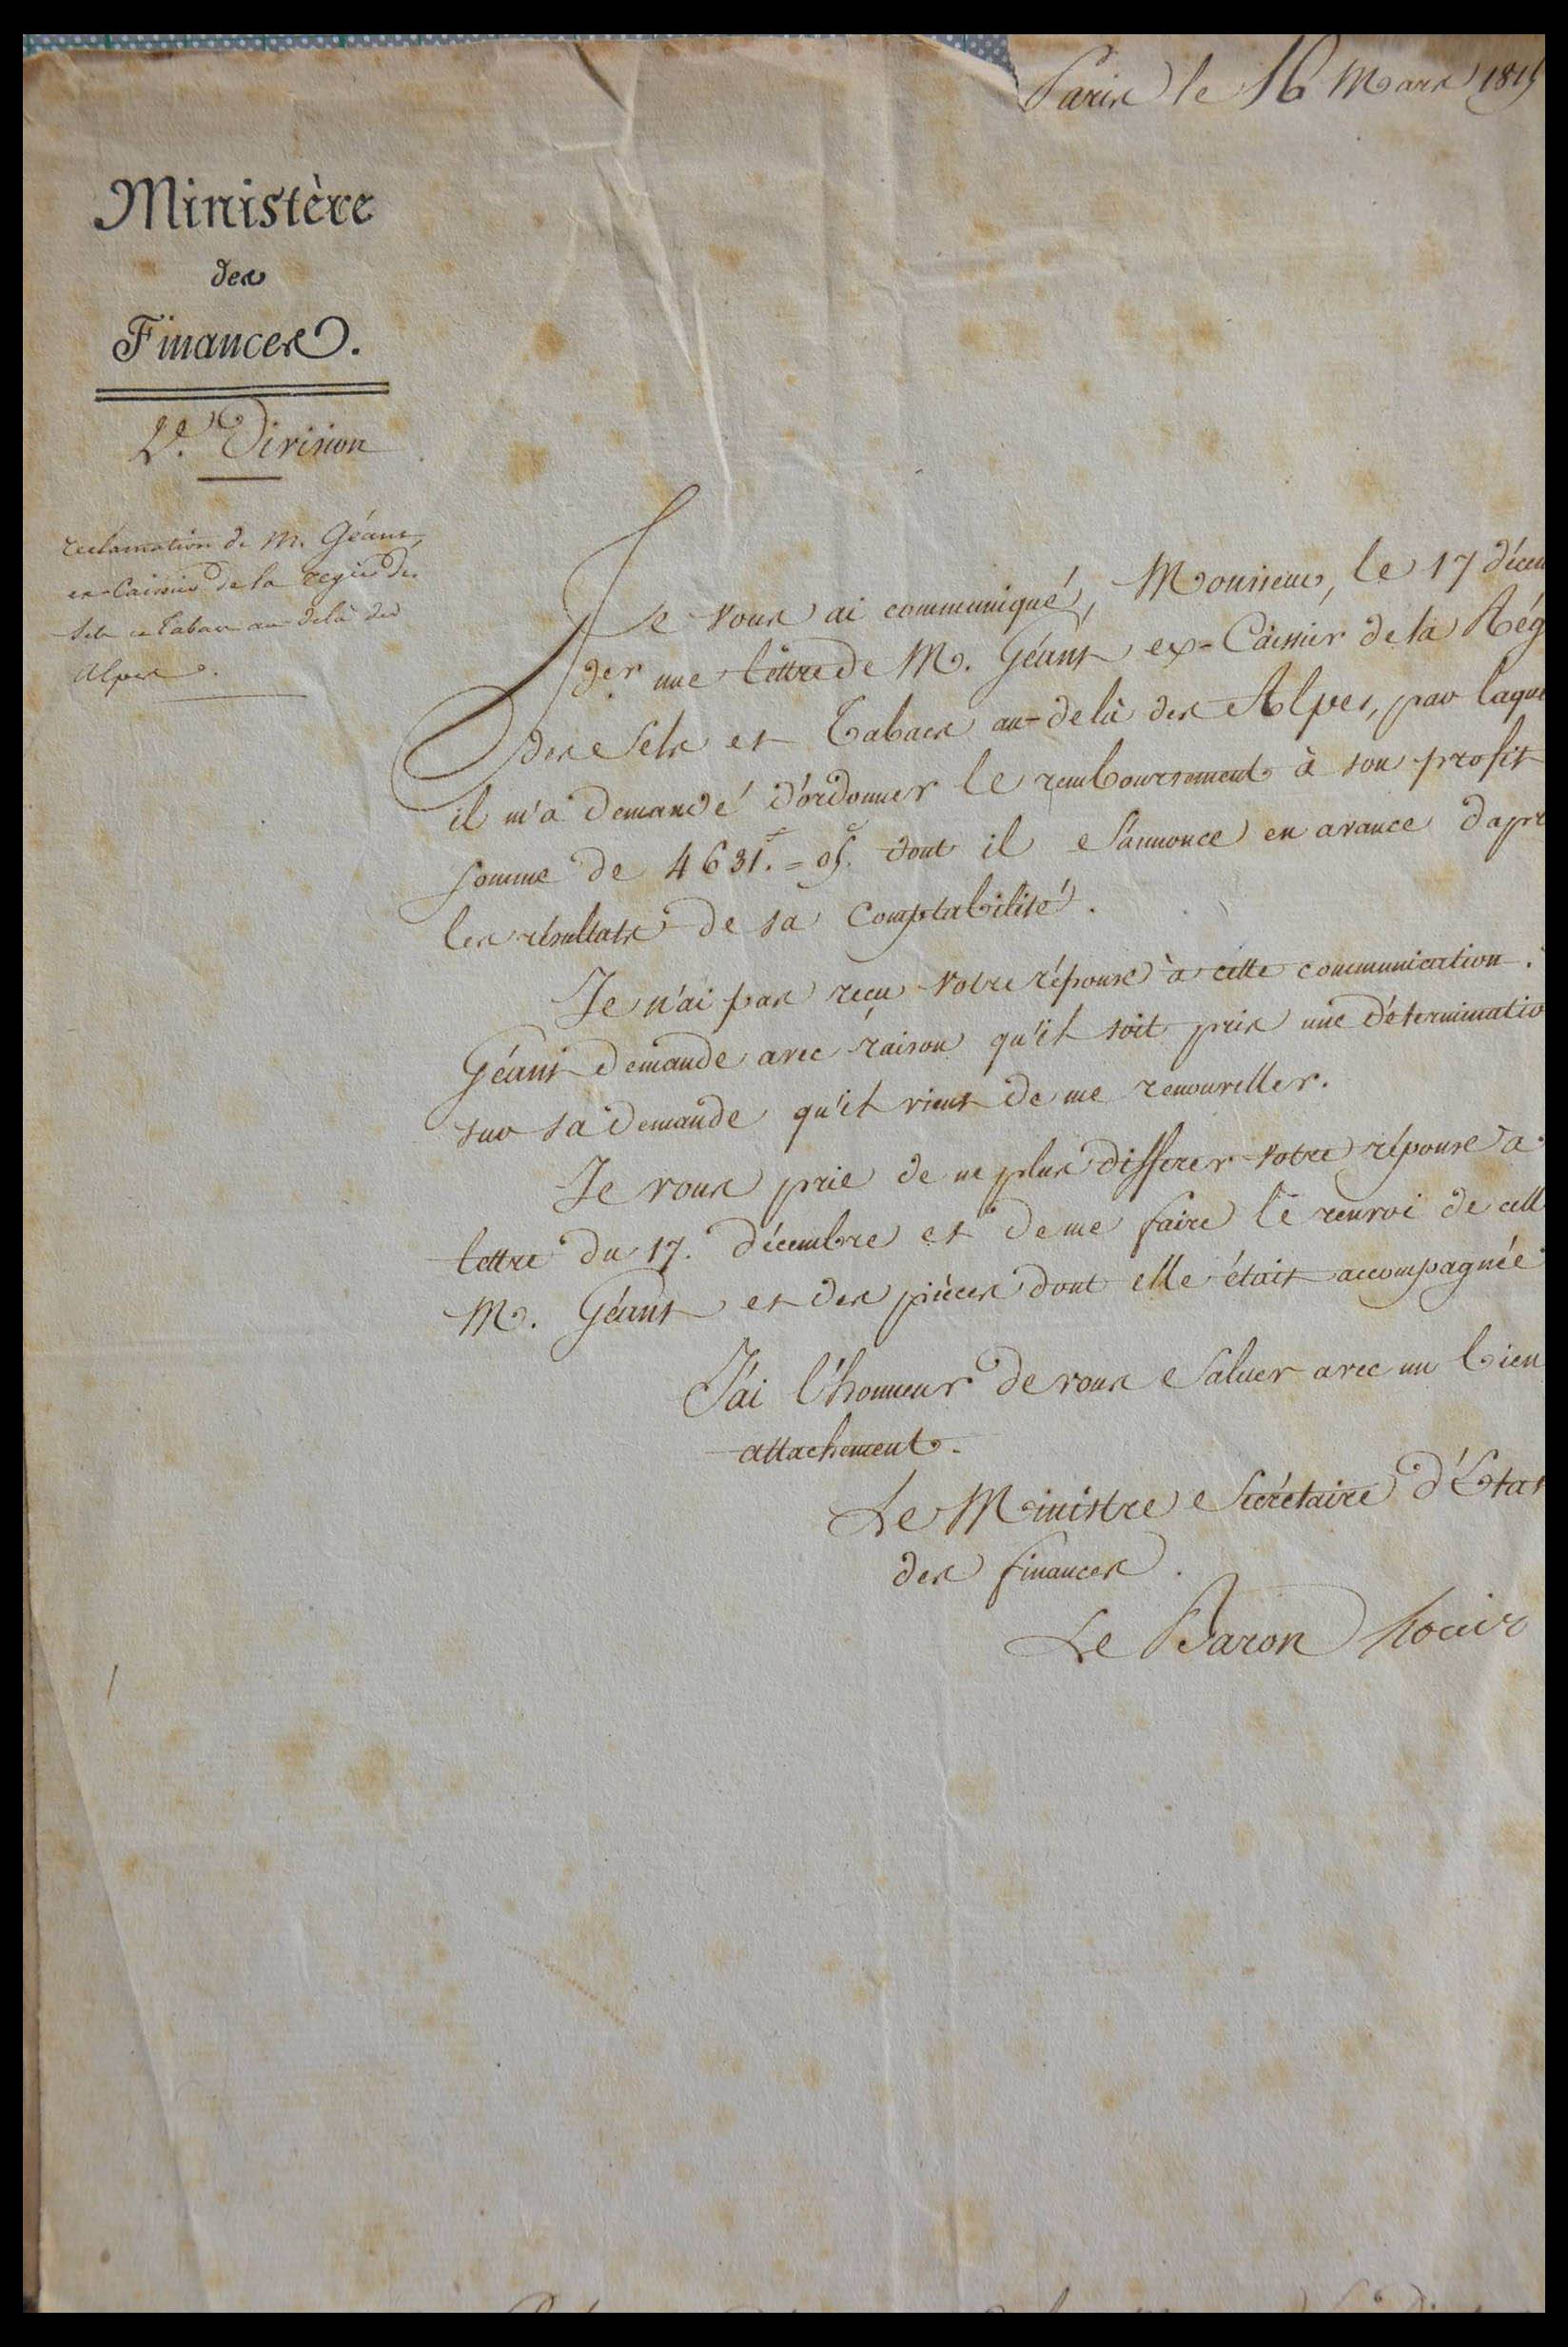 Paris le 16 Mars 1815
Ministère
des
Finances.
2e. Division
reclamation de M. Géant,
ex-Caissier de la regie des
Sels et Tabacs au delà des
Alpes.
Je vous ai communiqué, Monsieur, le 17 décem
der une lettre de M. Géant ex-Caissier de la Rég
des Sels et Tabacs au-delà des Alpes, par laque
il m'a demandé d'ordonner le remboursement à son profit
somme de 4631.f = 05.c dont il s'annonce en avance d'apr
les résultats de sa Comptabilité.
Je n'ai pas reçu votre réponse à cette communication.
Géant demande avec raison qu'il soit pris une déterminatio
sur sa demande qu'il vient de me renouveller.
Je vous prie de ne plus differer votre réponse à
lettre du 17. décembre et de me faire le renvoi de cell
M. Géant et des pièces dont elle était accompagnée
J'ai l'honneur de vous Saluer avec un bien
attachement.
Le Ministre Secrétaire d'Etat
des finances.
Le Baron Louis